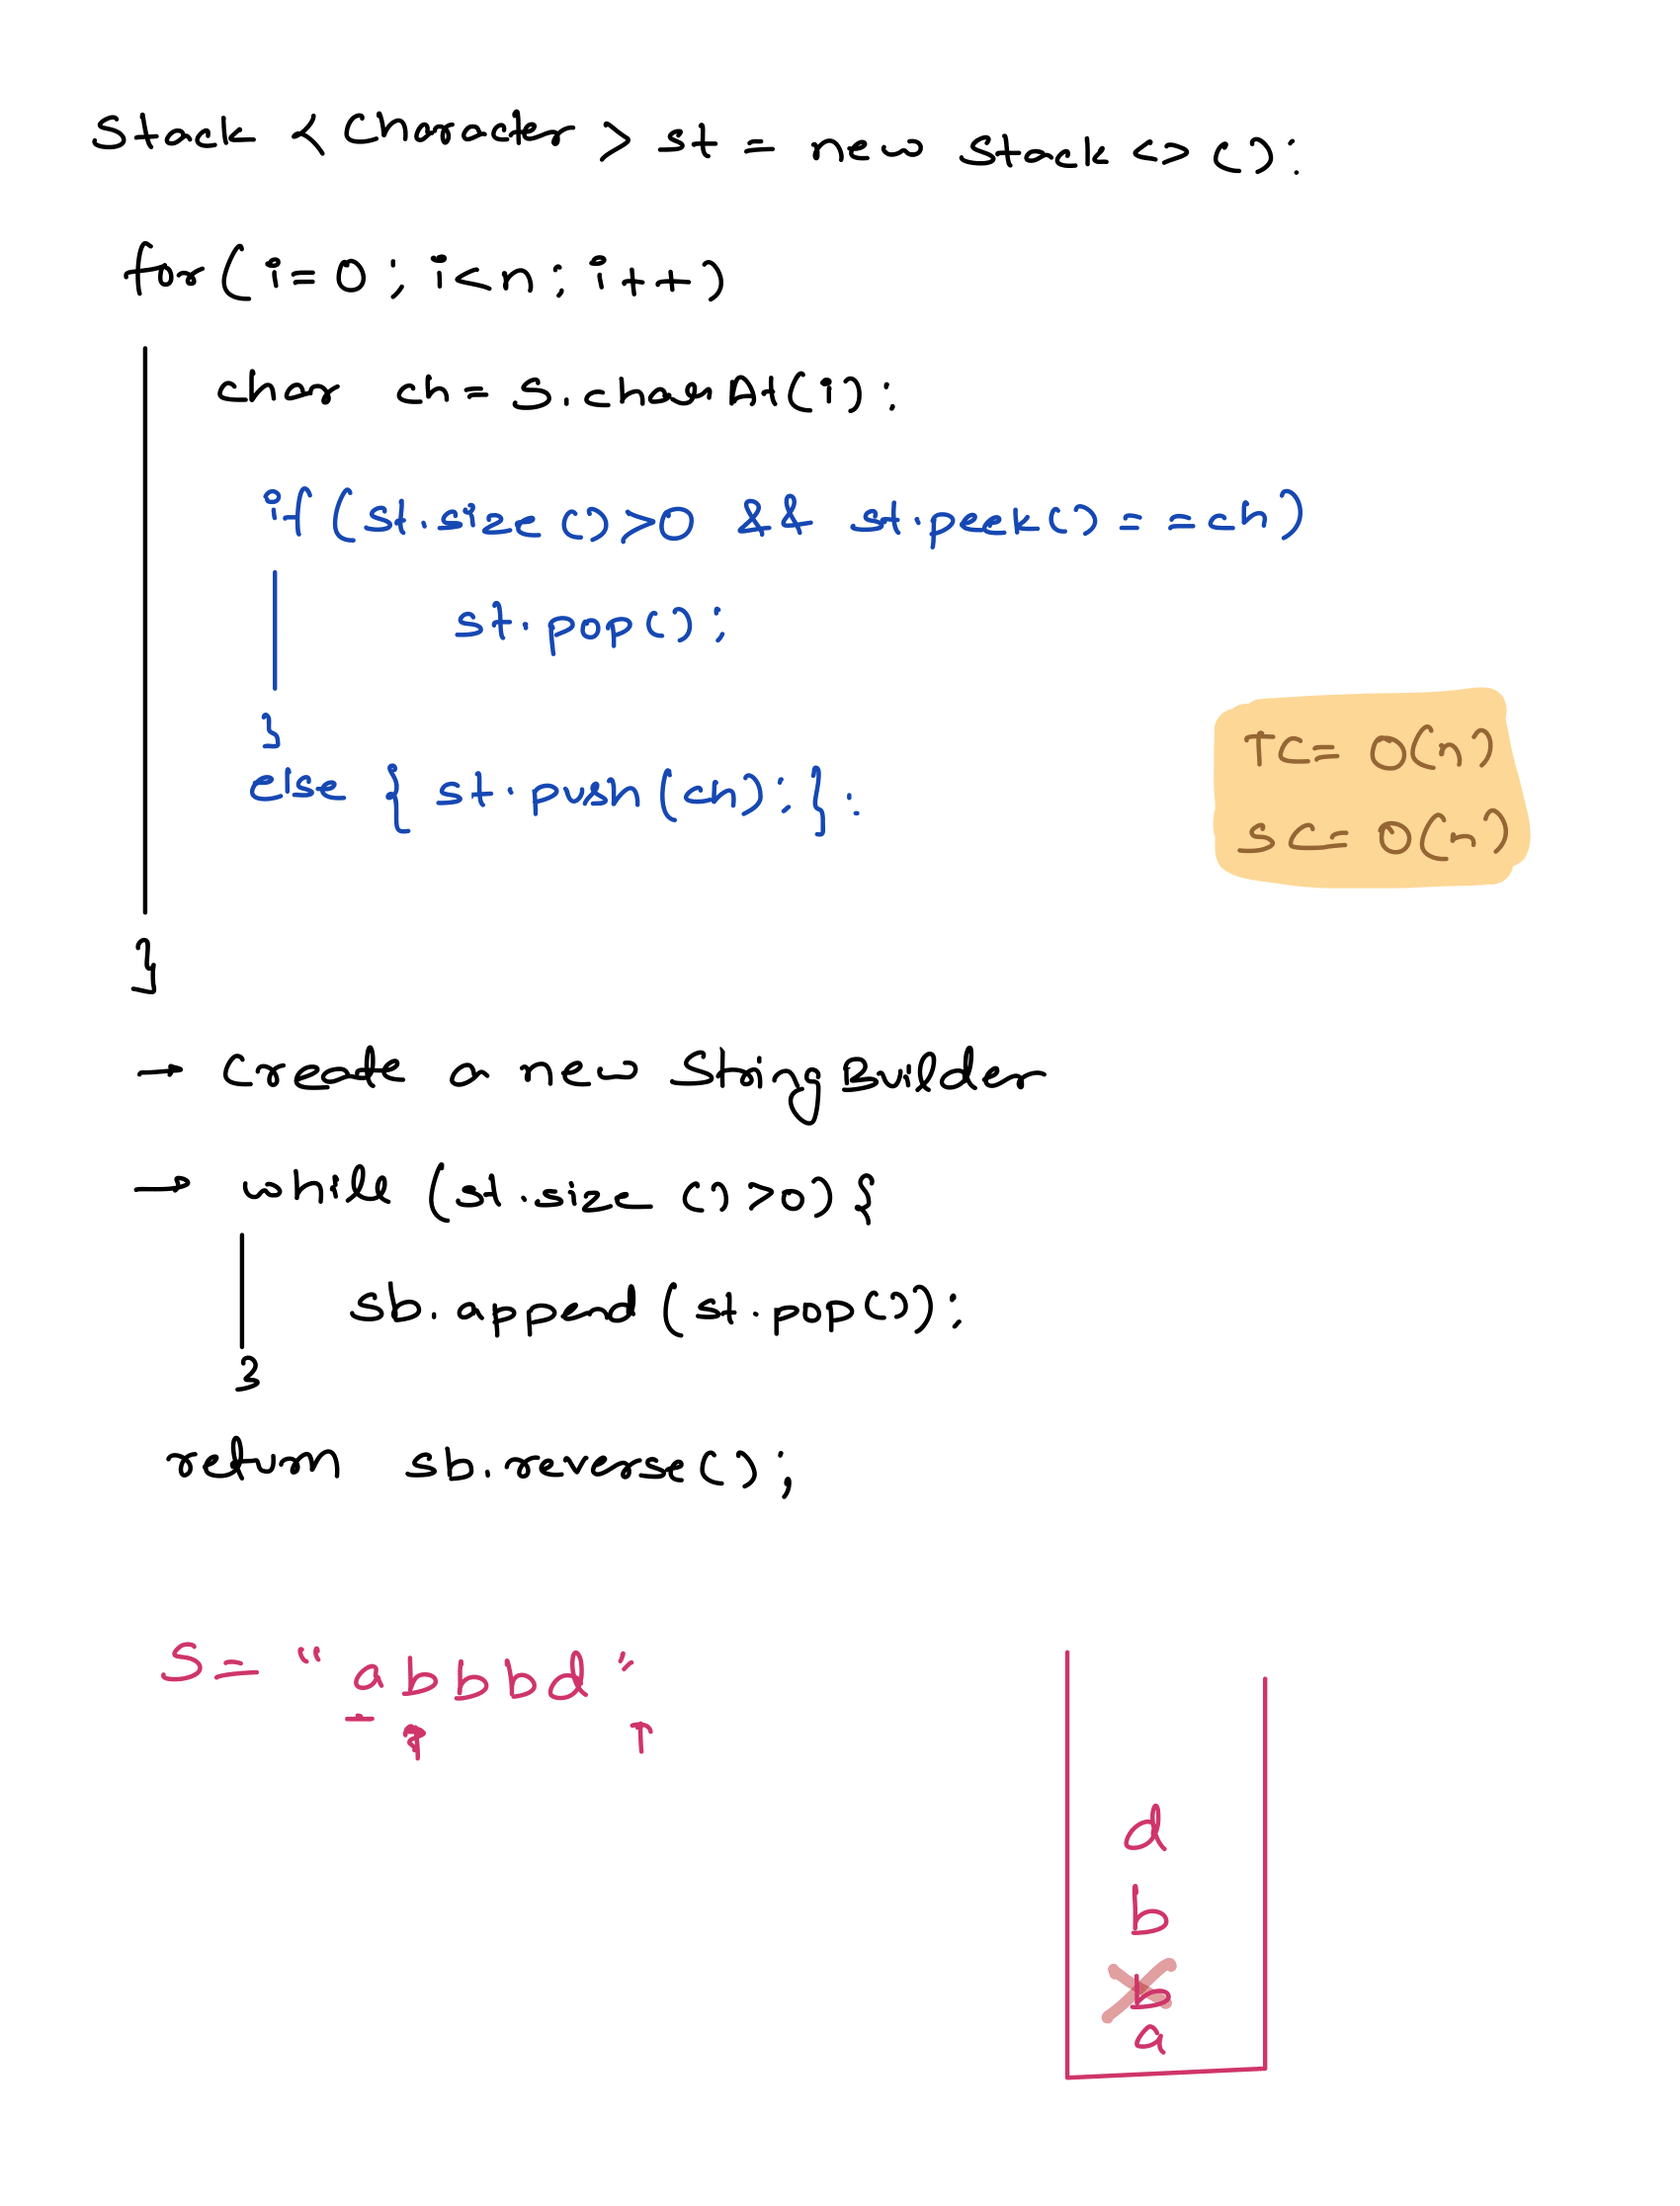 Stack < Character > st = new Stack <> ():
for ( i = 0 ; i < n ; i ++ )
char ch = S.charAt(i):
if ( st.size () > 0 && st.peek() = = ch )
st.pop();
}
else { st.push(ch); } :
TC = O(n)
SC = O(n)
}
→ Create a new String Builder
→ while (st.size () > 0) {
sb.append (st.pop());
}
return sb.reverse();
S = " a b b b d "
d
b
b
a